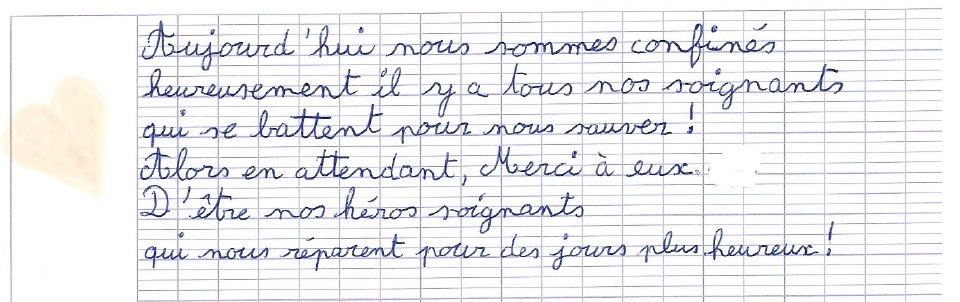 Aujourd'hui nous sommes confinés
heureusement il y a tous nos soignants
qui se battent pour nous sauver !
Alors en attendant, Merci à eux.
D'être nos héros soignants
qui nous réparent pour des jours plus heureux !